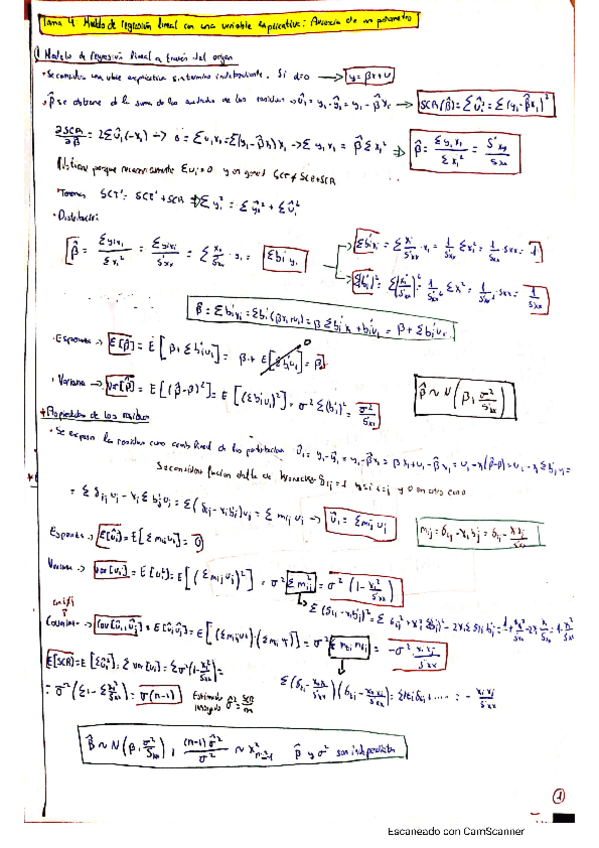 Tema 4 Modelo de regresión lineal con una variable explicativa: Ausencia de un parámetro
1) Modelo de regresión lineal a través del origen
• Se considera una variable explicativa sin término independiente. Si α=0 → y = βx + u
• β̂ se obtiene de la suma de los cuadrados de los residuos → û_i = y_i - ŷ_i = y_i - β̂x_i → SCR(β̂) = Σû_i² = Σ(y_i - β̂x_i)²
∂SCR/∂β = 2Σû_i(-x_i) → 0 = Σû_i x_i = Σ(y_i - β̂x_i)x_i → Σy_i x_i = β̂Σx_i² ⇒ β̂ = Σy_i x_i / Σx_i² = S'xy / S'xx
porque necesariamente Σu_i = 0 y en general SCT ≠ SCE + SCR
Tenemos SCT' = SCE' + SCR ⇒ Σy_i² = Σŷ_i² + Σû_i²
• Distribución
β̂ = Σy_i x_i / Σx_i² = Σy_i x_i / S'xx = Σ x_i/S'xx · y_i = Σb'_i y_i
Σb'_i x_i = Σ x_i/S'xx · x_i = 1/S'xx Σx_i² = 1/S'xx · S'xx = 1
Σ(b'_i)² = Σ(x_i/S'xx)² = 1/S'xx² · Σx² = 1/S'xx² · S'xx = 1/S'xx
β̂ = Σb'_i x_i = Σb'_i(βx_i + u_i) = βΣb'_i x_i + b'_i u_i = β + Σb'_i u_i
• Esperanza → E[β̂] = E[β + Σb'_i u_i] = β + E[Σb'_i u_i] = β
0
• Varianza → var[β̂] = E[(β̂-β)²] = E[(Σb'_i u_i)²] = σ²Σ(b'_i)² = σ²/S'xx
β̂ ~ N(β, σ²/S'xx)
Propiedades de los residuos
• Se expresa los residuos como comb lineal de las perturbaciones û_i = y_i - ŷ_i = y_i - β̂x_i = βx_i + u_i - β̂x_i = u_i - x_i(β̂-β) = u_i - x_iΣb'_j u_j =
Se considera función delta de Kronecker δ_ij = 1 si i=j y 0 en otro caso
= Σδ_ij u_j - x_iΣb'_j u_j = Σ(δ_ij - x_i b'_j)u_j = Σm_ij u_j → û_i = Σm_ij u_j
m_ij = δ_ij - x_i b'_j = δ_ij - x_i x_j / S'xx
Esperanza → E[û_i] = E[Σm_ij u_j] = 0
Varianza → var[û_i] = E[û_i²] = E[(Σm_ij u_j)²] = σ²Σm_ij² = σ²(1 - x_i²/S'xx)
con i≠j
Covarianza → cov[û_i, û_j] = E[û_i û_j] =
E[SCR] = E[Σû_i²] = Σ var[û_i] = Σσ²(1 - x_i²/S'xx) =
= σ²(Σ1 - Σx_i²/S'xx) = σ²(n-1)
Estimador insesgado
β̂ ~ N(β, σ²/S'xx), (n-1)σ̂²/σ² ~ χ²_n-1 β̂ y σ̂² son independientes
1
Escaneado con CamScanner